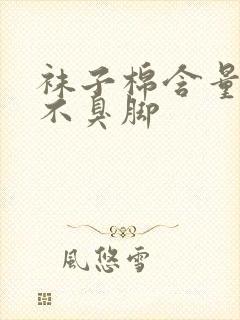 袜子棉含量
不臭脚
風悠雪